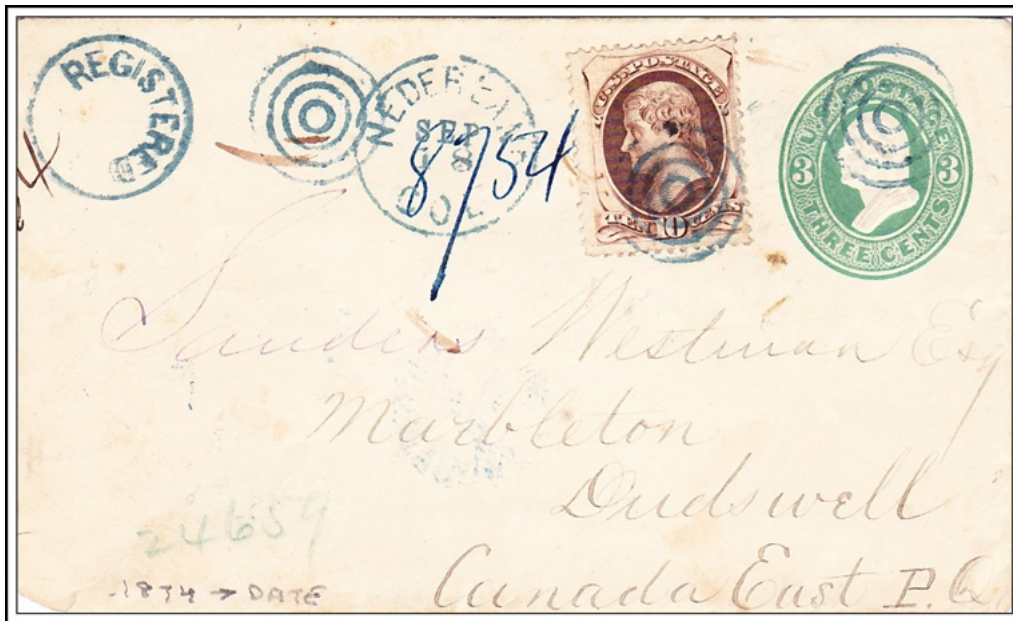 REGISTERED
NEDERLAND
SEP
18
COL
8754
U.S. POSTAGE
TEN 10 CENTS
U.S. POSTAGE
3 3
THREE CENTS
4
Sanders Westman Esq
Marbleton
Dudswell
Canada East P.Q.
24659
1874 → DATE